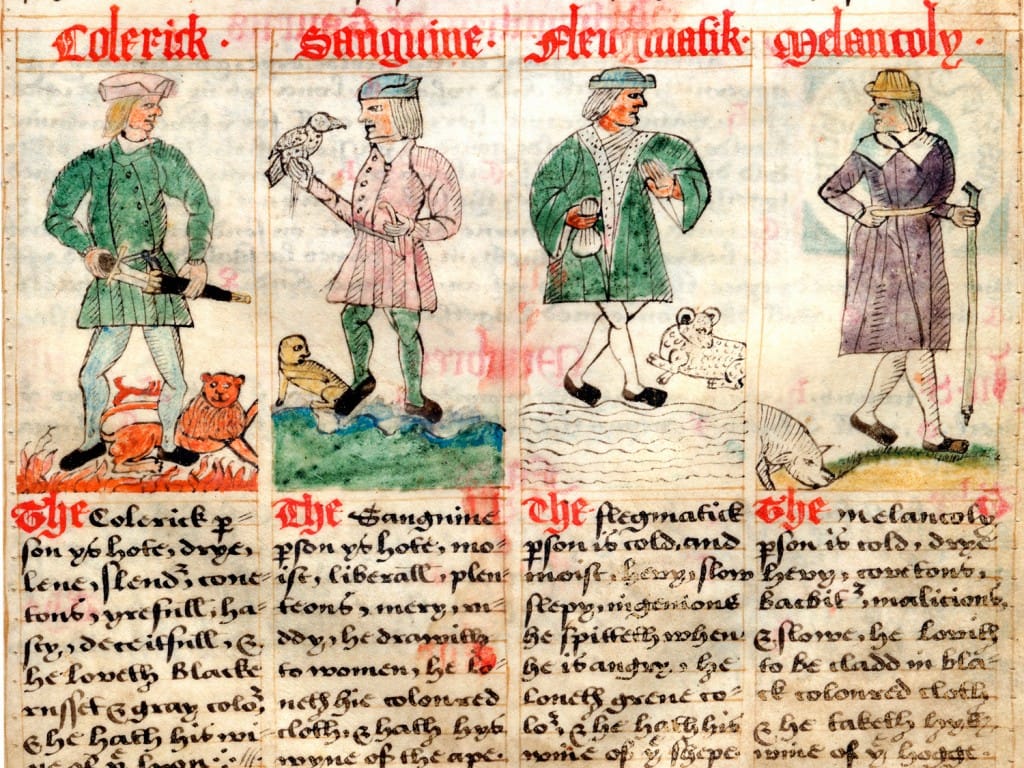 Colerik ·
The Colerick p̄=
son ys hote, drye,
lene, slendʼ, coue=
tous, yrefull, ha=
sty, deceitfull, &
he loveth blacke
russet & gray coloʼ
& he hath his wi=
ne of yͤ lyon.
Sanguine ·
The Sanguine
p̄son ys hote, mo=
ist, liberall, plen=
teous, mery, ru=
ddy, he drawith
to women, he lo=
ueth hie coloured
cloth, & hath hys
wyne of the ape.
Fleugmatik ·
The flegmatick
p̄son is cold, and
moist, hevy, slow
slepy, ingenious
he spitteth when
he is angry, he
loueth grene co=
loʼ, & he hath his
wine of yͤ shepe.
Melancoly ·
The melancoly
p̄son is cold, drye
hevy, covetous,
bacbitʼ, malicious,
& slowe, he lovith
to be cladd in bla=
ck coloured cloth
& he taketh hys
wine of yͤ hogge.